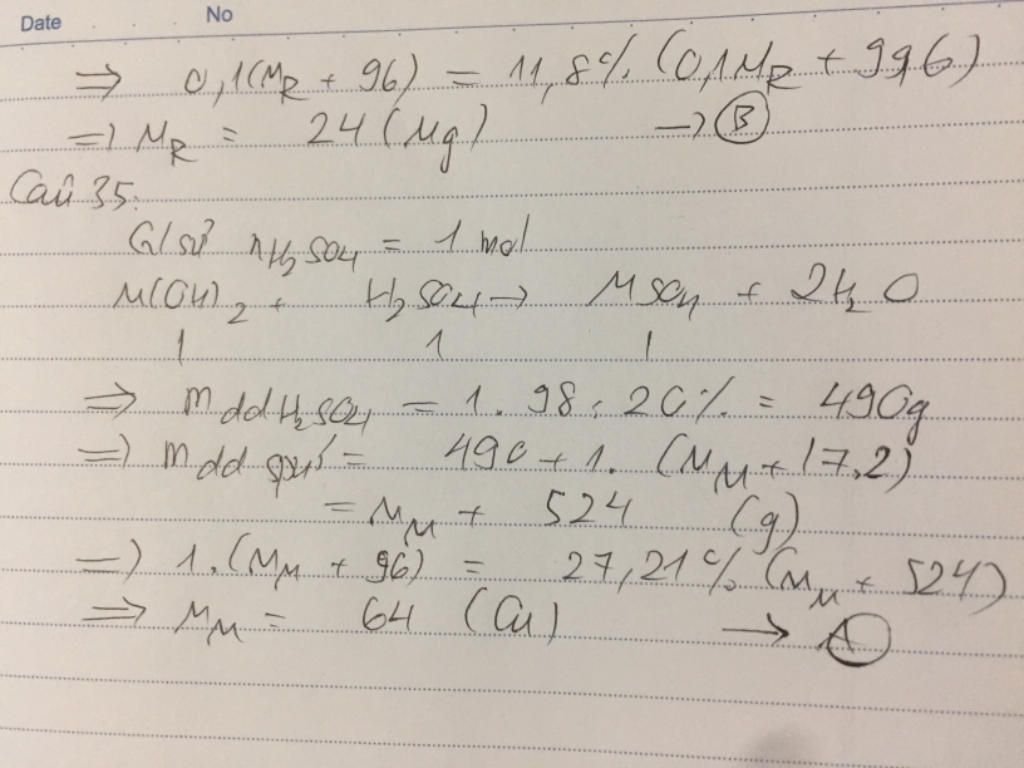 Date No
⇒ 0,1(M_R + 96) = 11,8% (0,1M_R + 996)
⇒ M_R = 24 (Mg) → B
Câu 35:
G/sử nH₂SO₄ = 1 mol
M(OH)₂ + H₂SO₄ → MSO₄ + 2H₂O
1 1 1
⇒ m dd H₂SO₄ = 1.98:20% = 490g
⇒ m dd spứ = 490 + 1.(M_M + 17.2)
= M_M + 524 (g)
⇒ 1.(M_M + 96) = 27,21% (M_M + 524)
⇒ M_M = 64 (Cu) → A